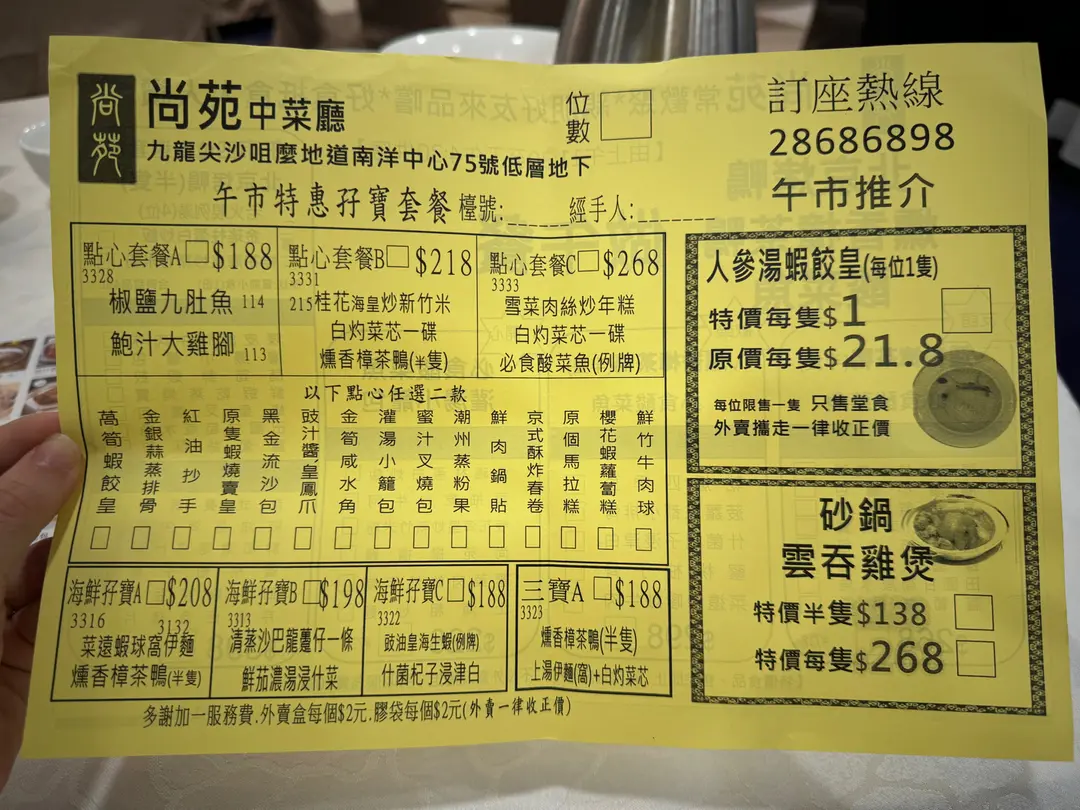 尚苑
尚苑中菜廳
九龍尖沙咀麼地道南洋中心75號低層地下
位數
訂座熱線
28686898
午市特惠孖寶套餐 檯號:______ 經手人:_______
午市推介
點心套餐A□$188
3328
椒鹽九肚魚 114
鮑汁大雞腳 113
點心套餐B□$218
3331
215桂花海皇炒新竹米
白灼菜芯一碟
燻香樟茶鴨(半隻)
點心套餐C□$268
3333
雪菜肉絲炒年糕
白灼菜芯一碟
必食酸菜魚(例牌)
以下點心任選二款
萬筍蝦餃皇
金銀蒜蒸排骨
紅油抄手
原隻蝦燒賣皇
黑金流沙包
豉汁醬皇鳳爪
金筍咸水角
灌湯小籠包
蜜汁叉燒包
潮州蒸粉果
鮮肉鍋貼
京式酥炸春卷
原個馬拉糕
櫻花蝦蘿蔔糕
鮮竹牛肉球
海鮮孖寶A□$208
3316 3132
菜遠蝦球窩伊麵
燻香樟茶鴨(半隻)
海鮮孖寶B□$198
3313
清蒸沙巴龍躉仔一條
鮮茄濃湯浸什菜
海鮮孖寶C□$188
3322
豉油皇海生蝦(例牌)
什菌杞子浸津白
三寶A□$188
3323
燻香樟茶鴨(半隻)
上湯伊麵(窩)+白灼菜芯
多謝加一服務費.外賣盒每個$2元.膠袋每個$2元(外賣一律收正價)
人參湯蝦餃皇(每位1隻)
特價每隻$1
原價每隻$21.8
每位限售一隻 只售堂食
外賣攜走一律收正價
砂鍋
雲吞雞煲
特價半隻$138
特價每隻$268